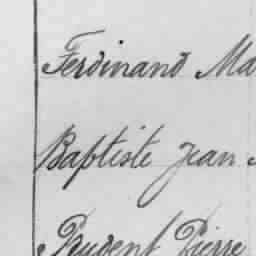 Ferdinand Ma
Baptiste Jean
Prudent Pierre